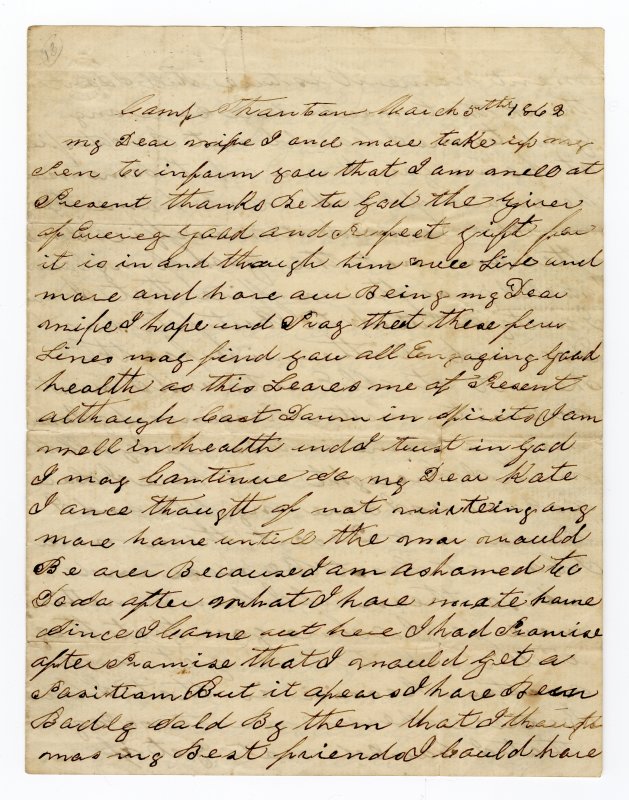 18
Camp Stanton March 5th 1862
my Dear wife I once more take up my
Pen to inform you that I am well at
Present thanks Be to God the Giver
of Everey Good and Perfect gift for
it is in and though him wee Live and
move and have our Being my Dear
wife I hope and Pray that these few
Lines may find you all Engoying Good
health as this Leaves me at Present
although Cast Down in spirits I am
well in health and I trust in God
I may Continue so my Dear Kate
I once thought of not writeing any
more home untill the war would
Be over Because I am ashamed to
Do so after what I have wrote home
since I Came out here I had Promise
after Promise that I would get a
Position But it apears I have Been
Badly sold By them that I thought
was my Best friends I Could have